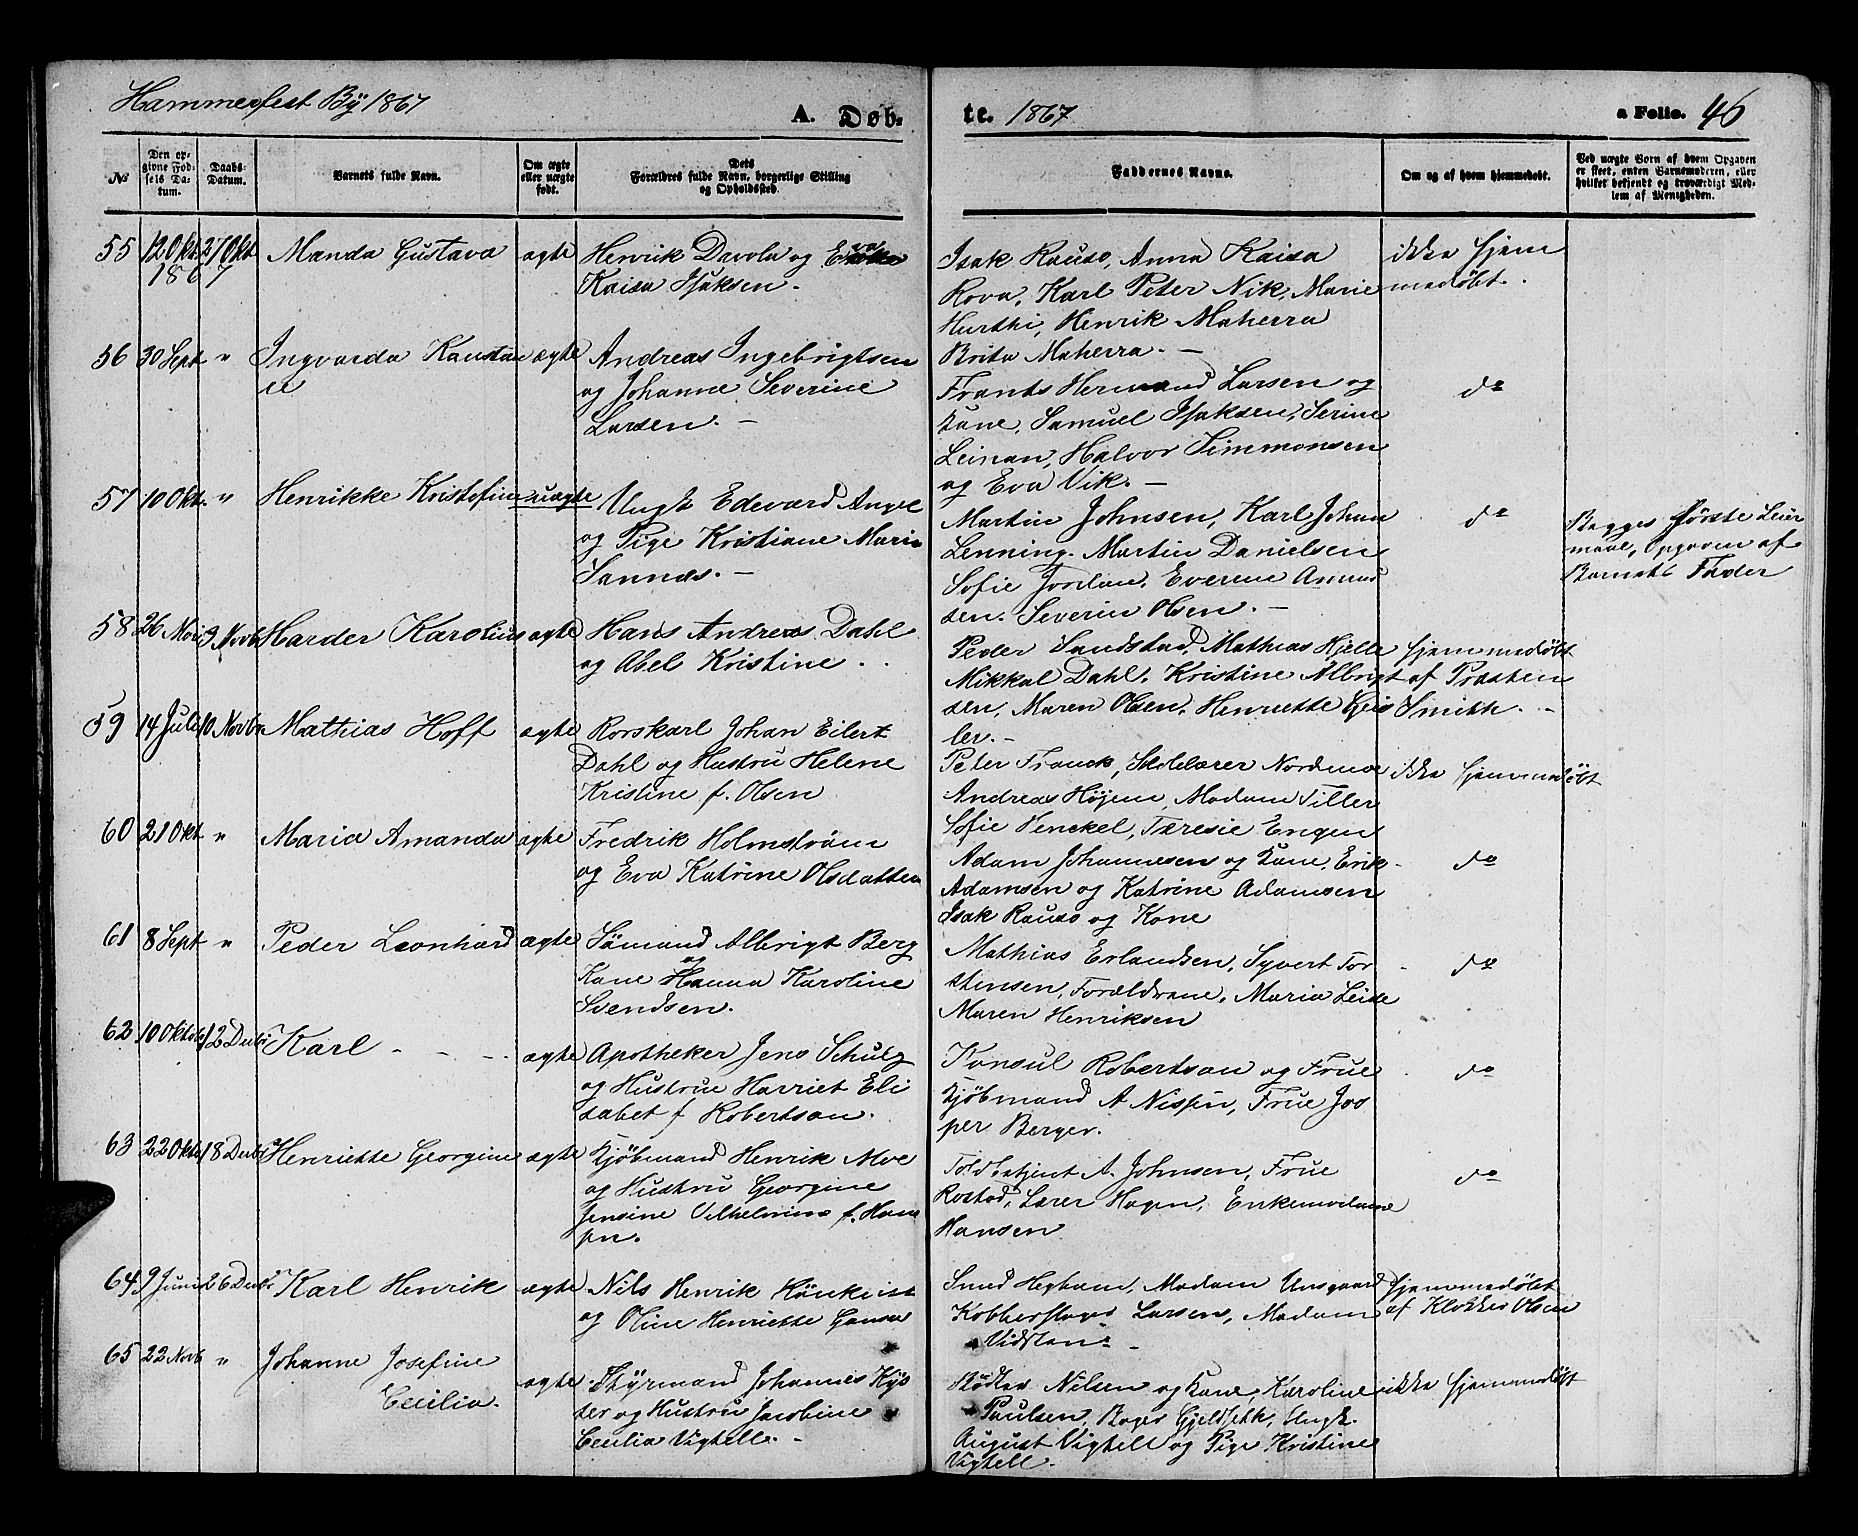 Hammerfest By 1867
A. Døb-
te. 1867
a Folio. 46
№
Den opgivne Fødsels Datum.
Daabs-Datum.
Barnets fulde Navn.
Om ægte eller uægte født.
Dets Forældres fulde Navn, borgerlige Stilling og Opholdssted.
Faddernes Navne.
Om og af hvem hjemmedøbt.
Ved uægte Born af hvem Opgaven er skeet, enten Barnemoderen, eller hvilket bekjendt og troværdigt Medlem af Menigheden.
55 12 Okt 27 Okt Manda Gustava ægte Henrik Davola og Eva
1867
Kaisa Isaksen.
Isak Rauso, Anna Kaisa ikke hjem
Rova, Karl Peter Nik, Marie medøbt.
Hurthi, Henrik Maherra
Brita Maherra. —
56 30 Sept " Ingvarda Konstan ægte Andreas Ingebrigtsen
og Johanne Severine
Larsen. —
Frants Hermand Larsen og do
Kone, Samuel Isaksen, Serine
Leinan, Halvor Simmonsen
og Eva Vik. —
57 10 Okt. " Henrikke Kristofine uægte Ungk Edevard Angel
og Pige Kristiane Marie
Sannes. —
Martin Johnsen, Karl Johan do Begges første Leier
Lenning. Martin Danielsen maal, Opgaven af
Sofie Jordan, Everene Amund Barnets Fader
sen. Severin Olsen. —
58 26 Mai 3 Novb Harder Karolius ægte Hans Andreas Dahl
og Abel Kristine . .
Peder Sandstad, Mathias Hjelle hjemmedøbt
Mikkal Dahl. Kristine Albrigt af Præsten
sen, Maren Olsen, Henriette Gjes Smith. -
ler. —
59 14 Juli 10 Novb Mathias Hoff ægte Rorskarl Johan Eilert
Dahl og Hustru Helene
Kristine f. Olsen
Peter Franck, Skolelærer Nordmoe ikke hjemmedøbt
Andreas Højem, Madam Tiller
Sofie Venckel, Teresie Engen
60 21 Okt " Maria Amanda ægte Fredrik Holmstrøm
og Eva Katrine Olsdatter
Adam Johannesen og Kone, Erik do
Adamsen og Katrine Adamsen
Isak Rauso og Kone
61 8 Sept " Peder Leonhard ægte Sømand Albrigt Berg
Kone og Hanna Karoline
Svendsen.
Mathias Erlandsen, Syvert Tor do
stensen, Forældrene, Maria Leide
Maren Henriksen
62 10 Oktob 12 Decbr Karl - - - ægte Apotheker Jens Schulz
og Hustrue Harriet Eli
sabet f Robertson.
Konsul Robertson og Frue do
Kjøbmand A Nissen, Frue Jes
per Berger.
63 22 Okt 18 Decbr Henriette Georgine ægte Kjøbmand Henrik Moe
og Hustru Georgine
Jensine Vilhelmine f. Han
sen.
Toldbetjent A. Johnsen, Frue do
Rostad, Lærer Hagen, Enkemadame
Hansen
64 9 Juni 26 Decbr Karl Henrik ægte Nils Henrik Rönkvist
og Oline Henriette Hansen
Smed Hegham, Madam Unsgaard hjemmedøbt
Kobberslager Larsen, Madam af Klokker Olsen
Vidsten
65 22 Novb " Johanne Josefine ægte Styrmand Johannes Kys
Cecilia.
ter og Hustru Jacobine
Cecilia Vigtell. —
Bødker Nilsen og Kone, Karoline ikke hjemmedøbt
Paulsen, Bager Gjeldseth, Ungk.
August Vigtell og Pige Kristine
Vigtell.